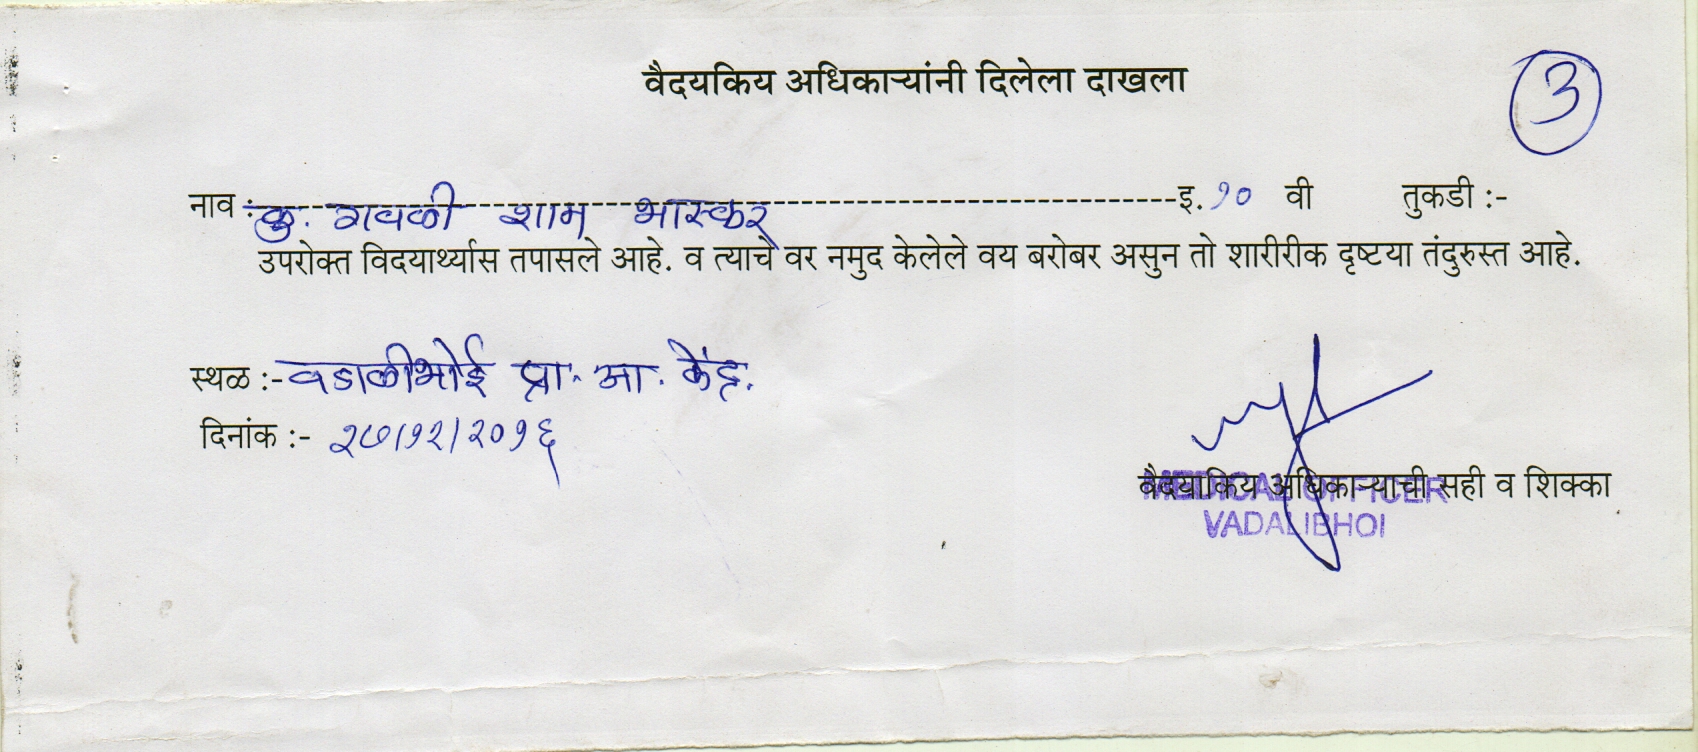 वैदयकिय अधिकाऱ्यांनी दिलेला दाखला
3
नाव :- कु. गवळी शाम भास्कर इ. १० वी तुकडी :-
उपरोक्त विदयार्थ्यास तपासले आहे. व त्याचे वर नमुद केलेले वय बरोबर असुन तो शारीरीक दृष्टया तंदुरुस्त आहे.
स्थळ :- वडाळीभोई प्रा. आ. केंद्र.
दिनांक :- २७/१२/२०१६
वैदयाकिय अधिकाऱ्याची सही व शिक्का
MEDICAL OFFICER
VADALIBHOI